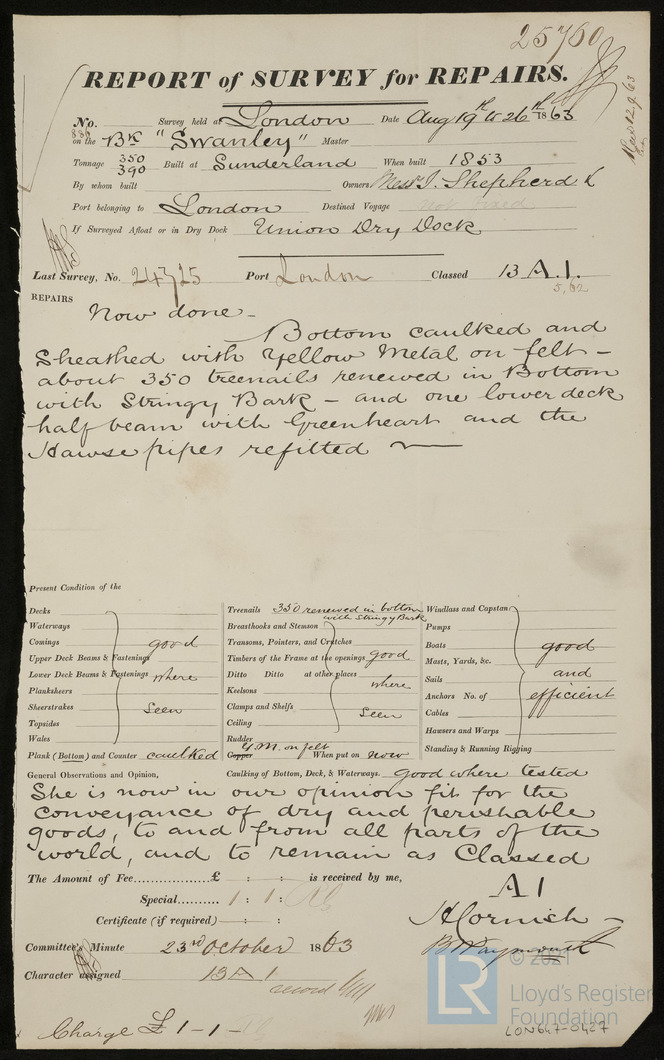 25760
REPORT of SURVEY for REPAIRS.
No. Survey held at London Date Aug 19th to 26th 1863
Recd 12.9.63
on the Bk "Swanley" Master
Tonnage 350 390 Built at Sunderland When built 1853
By whom built Owners Messrs J. Shepherd &
Port belonging to London Destined Voyage not fixed
If Surveyed Afloat or in Dry Dock Union Dry Dock
Last Survey, No. 24325 Port London Classed 13 A.1.
5,62
REPAIRS
Now done -
Bottom caulked and
Sheathed with Yellow Metal on felt -
about 350 treenails renewed in Bottom
with Stringy Bark - and one lower deck
half beam with Greenheart and the
Hawse pipes refitted
Present Condition of the
Decks
Waterways
Comings
Upper Deck Beams & Fastenings
Lower Deck Beams & Fastenings
Planksheers
Sheerstrakes
Topsides
Wales
good
where
seen
Plank (Bottom) and Counter caulked
Treenails 350 renewed in bottom
with Stringy Bark
Breasthooks and Stemson
Transoms, Pointers, and Crutches
Timbers of the Frame at the openings good
Ditto Ditto at other places
where
Keelsons
Clamps and Shelfs
seen
Ceiling
Rudder
Y.M. on felt
Copper When put on now
Windlass and Capstan
Pumps
Boats
Masts, Yards, &c.
Sails
Anchors No. of
Cables
Hawsers and Warps
Standing & Running Rigging
good
and
efficient
General Observations and Opinion, Caulking of Bottom, Deck, & Waterways. good where tested
She is now in our opinion fit for the
conveyance of dry and perishable
goods, to and from all parts of the
world, and to remain as Classed
A 1
The Amount of Fee.................£ : : is received by me,
Special.......... 1 : 1 :
Certificate (if required) : :
H Cornish
Committee's Minute 23rd October 1863
Character assigned 13 A 1
Charge £ 1-1-
LR
© 2021
Lloyd's Register
Foundation
LON647-0427